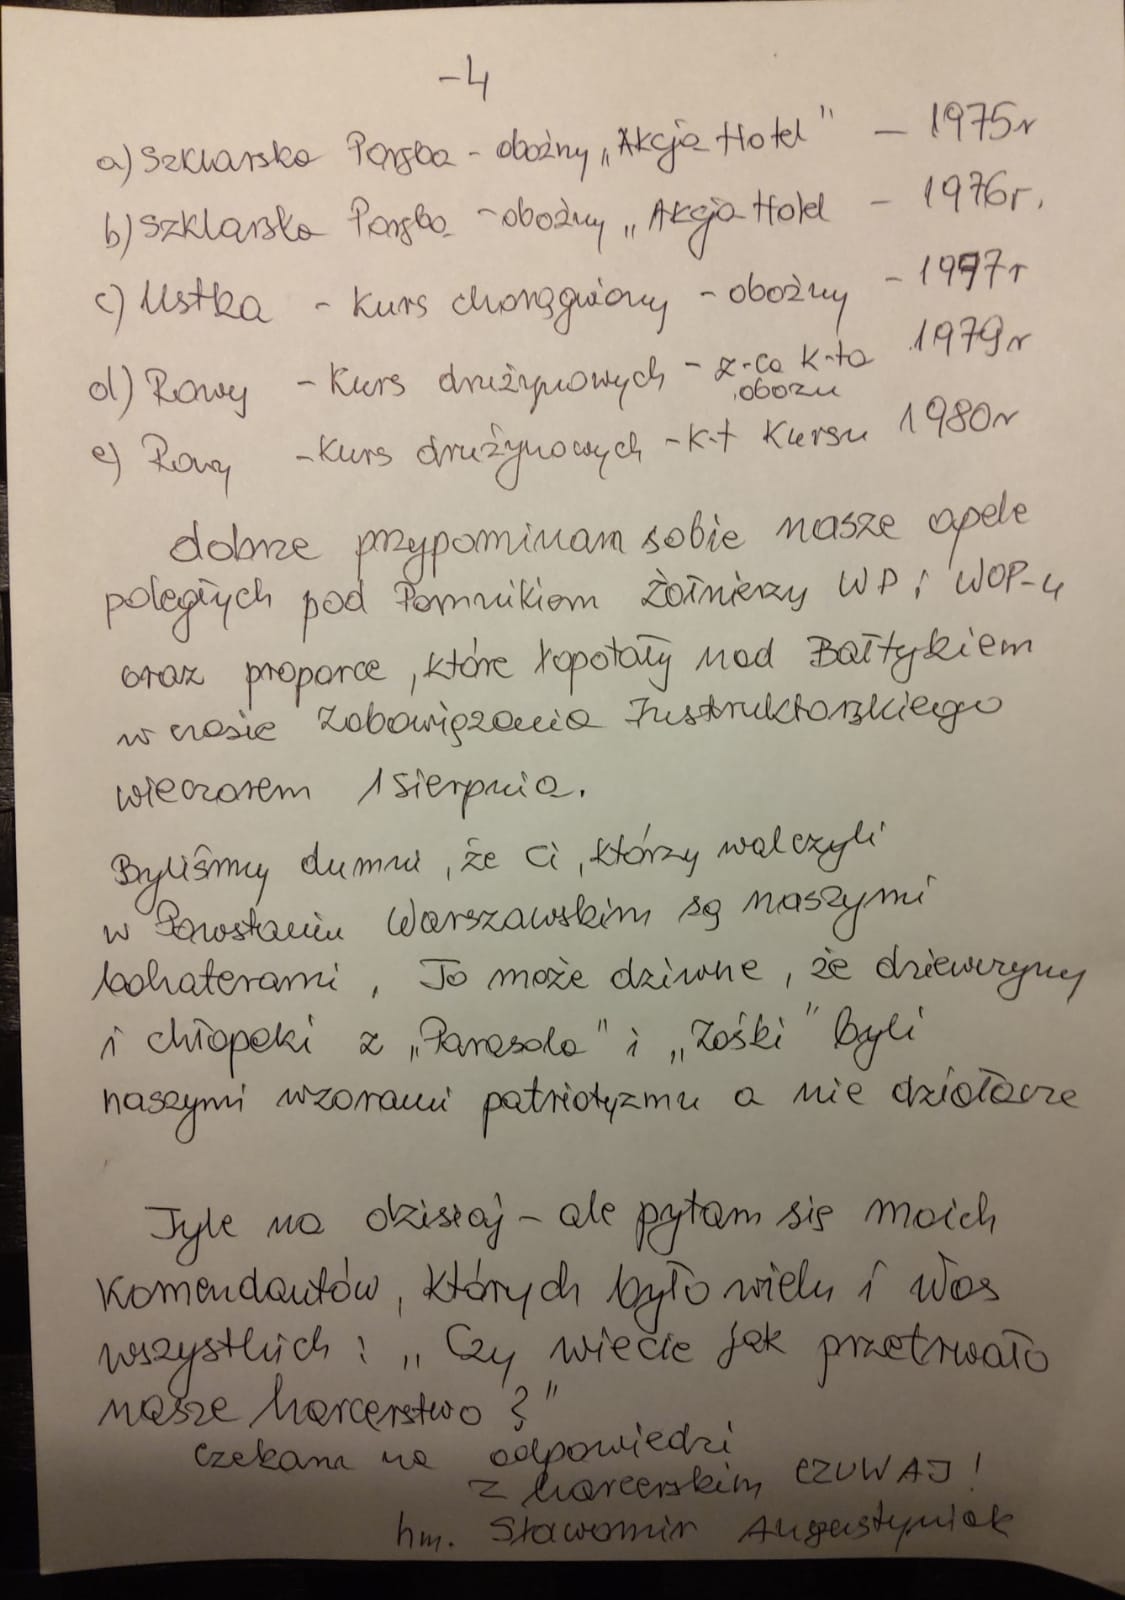 -4
a) Szklarska Poręba - oboźny „Akcja Hotel" - 1975r
b) Szklarska Poręba - oboźny „Akcja Hotel - 1976r.
c) Ustka - Kurs chorągwiany - oboźny - 1977r
d) Rowy - Kurs drużynowych - z-ca k-ta 1979r
obozu
e) Rowy - Kurs drużynowych - k-t Kursu 1980r
dobrze przypominam sobie nasze apele
poległych pod Pomnikiem Żołnierzy WP i WOP-u
oraz proporce, które łopotały nad Bałtykiem
w czasie Zobowiązania Instruktorskiego
wieczorem 1 sierpnia.
Byliśmy dumni, że Ci, którzy walczyli
w Powstaniu Warszawskim są naszymi
bohaterami, To może dziwne, że dziewczyny
i chłopaki z „Parasola" i „Zośki" byli
naszymi wzorami patriotyzmu a nie działacze
Tyle na dzisiaj - ale pytam się moich
Komendantów, których było wielu i Was
wszystkich: „Czy wiecie jak przetrwało
nasze harcerstwo?"
Czekam na odpowiedzi
z harcerskim CZUWAJ!
hm. Sławomir Augustyniak